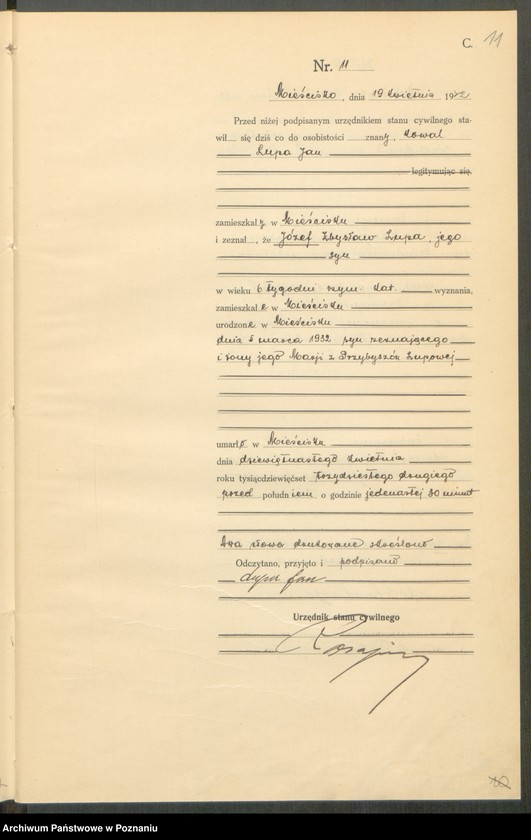 C. 11
Nr. 11
Mieścisko, dnia 19 kwietnia 1932
Przed niżej podpisanym urzędnikiem stanu cywilnego sta-
wił się dziś co do osobistości znany, kowal
Lupa Jan
legitymując się,
zamieszkały w Mieścisku
i zeznał, że Józef Zbysław Lupa, jego
syn
w wieku 6 tygodni rzym. kat. wyznania,
zamieszkał w Mieścisku
urodzon w Mieścisku
dnia 5 marca 1932 syn zeznającego
i żony jego Marji z Przybyszów Lupowej
umarł w Mieścisku
dnia dziewiętnastego kwietnia
roku tysiącdziewięćset trzydziestego drugiego
przed południem o godzinie jedenastej 30 minut
Dwa słowa drukowane skreślono
Odczytano, przyjęto i podpisano
Lupa Jan
Urzędnik stanu cywilnego
Archiwum Państwowe w Poznaniu